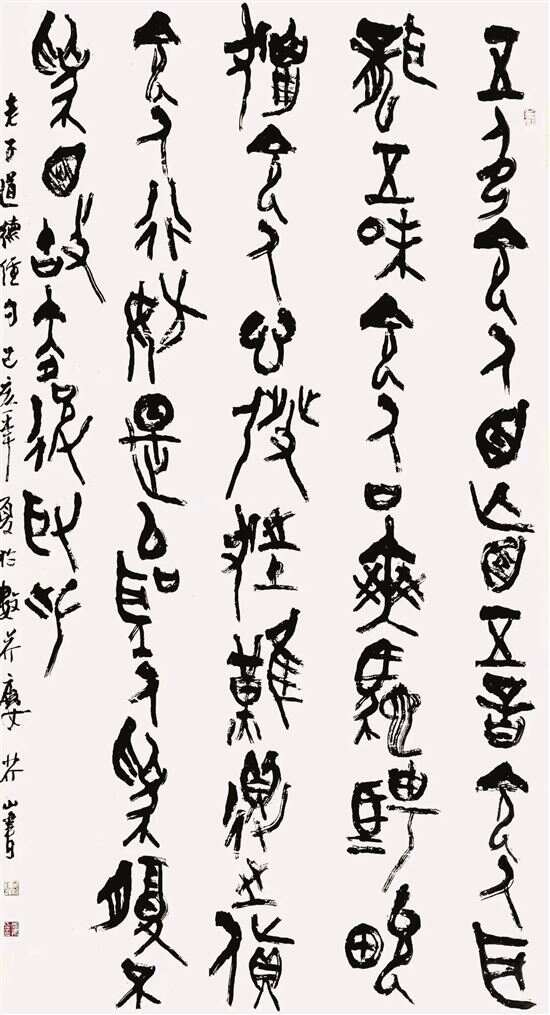 五色令人目盲五音令人耳
聾五味令人口爽馳騁畋
獵令人心發狂難得之貨
令人行妨是以聖人為腹不
為目故去彼取此
老子道德經句己亥年夏於數芥廬芥山書